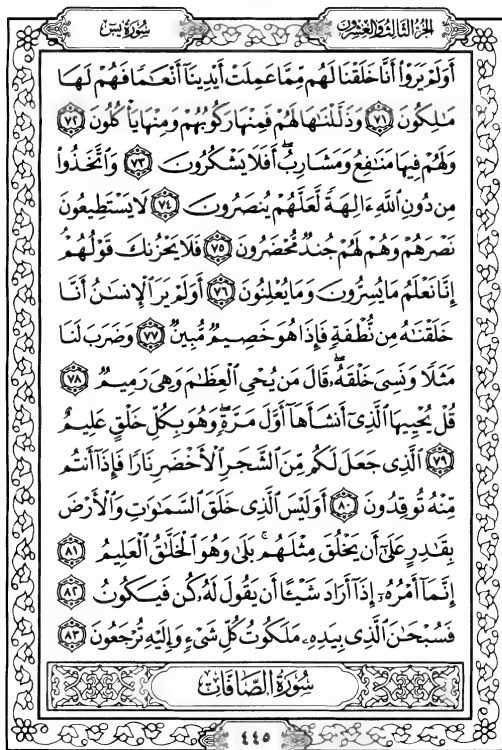 سُورَةُ يسٓ
الجُزْءُ الثَّالِثُ وَالعِشْرُون
أَوَلَمْ يَرَوْا۟ أَنَّا خَلَقْنَا لَهُم مِّمَّا عَمِلَتْ أَيْدِينَآ أَنْعَٰمًا فَهُمْ لَهَا
مَٰلِكُونَ ٧١ وَذَلَّلْنَٰهَا لَهُمْ فَمِنْهَا رَكُوبُهُمْ وَمِنْهَا يَأْكُلُونَ ٧٢
وَلَهُمْ فِيهَا مَنَٰفِعُ وَمَشَارِبُ ۖ أَفَلَا يَشْكُرُونَ ٧٣ وَٱتَّخَذُوا۟
مِن دُونِ ٱللَّهِ ءَالِهَةً لَّعَلَّهُمْ يُنصَرُونَ ٧٤ لَا يَسْتَطِيعُونَ
نَصْرَهُمْ وَهُمْ لَهُمْ جُندٌ مُّحْضَرُونَ ٧٥ فَلَا يَحْزُنكَ قَوْلُهُمْ ۘ
إِنَّا نَعْلَمُ مَا يُسِرُّونَ وَمَا يُعْلِنُونَ ٧٦ أَوَلَمْ يَرَ ٱلْإِنسَٰنُ أَنَّا
خَلَقْنَٰهُ مِن نُّطْفَةٍ فَإِذَا هُوَ خَصِيمٌ مُّبِينٌ ٧٧ وَضَرَبَ لَنَا
مَثَلًا وَنَسِىَ خَلْقَهُۥ ۖ قَالَ مَن يُحْىِ ٱلْعِظَٰمَ وَهِىَ رَمِيمٌ ٧٨
قُلْ يُحْيِيهَا ٱلَّذِىٓ أَنشَأَهَآ أَوَّلَ مَرَّةٍ ۖ وَهُوَ بِكُلِّ خَلْقٍ عَلِيمٌ
٧٩ ٱلَّذِى جَعَلَ لَكُم مِّنَ ٱلشَّجَرِ ٱلْأَخْضَرِ نَارًا فَإِذَآ أَنتُم
مِّنْهُ تُوقِدُونَ ٨٠ أَوَلَيْسَ ٱلَّذِى خَلَقَ ٱلسَّمَٰوَٰتِ وَٱلْأَرْضَ
بِقَٰدِرٍ عَلَىٰٓ أَن يَخْلُقَ مِثْلَهُم ۚ بَلَىٰ وَهُوَ ٱلْخَلَّٰقُ ٱلْعَلِيمُ ٨١
إِنَّمَآ أَمْرُهُۥٓ إِذَآ أَرَادَ شَيْـًٔا أَن يَقُولَ لَهُۥ كُن فَيَكُونُ ٨٢
فَسُبْحَٰنَ ٱلَّذِى بِيَدِهِۦ مَلَكُوتُ كُلِّ شَىْءٍ وَإِلَيْهِ تُرْجَعُونَ ٨٣
سُورَةُ الصَّافَّاتِ
٤٤٥